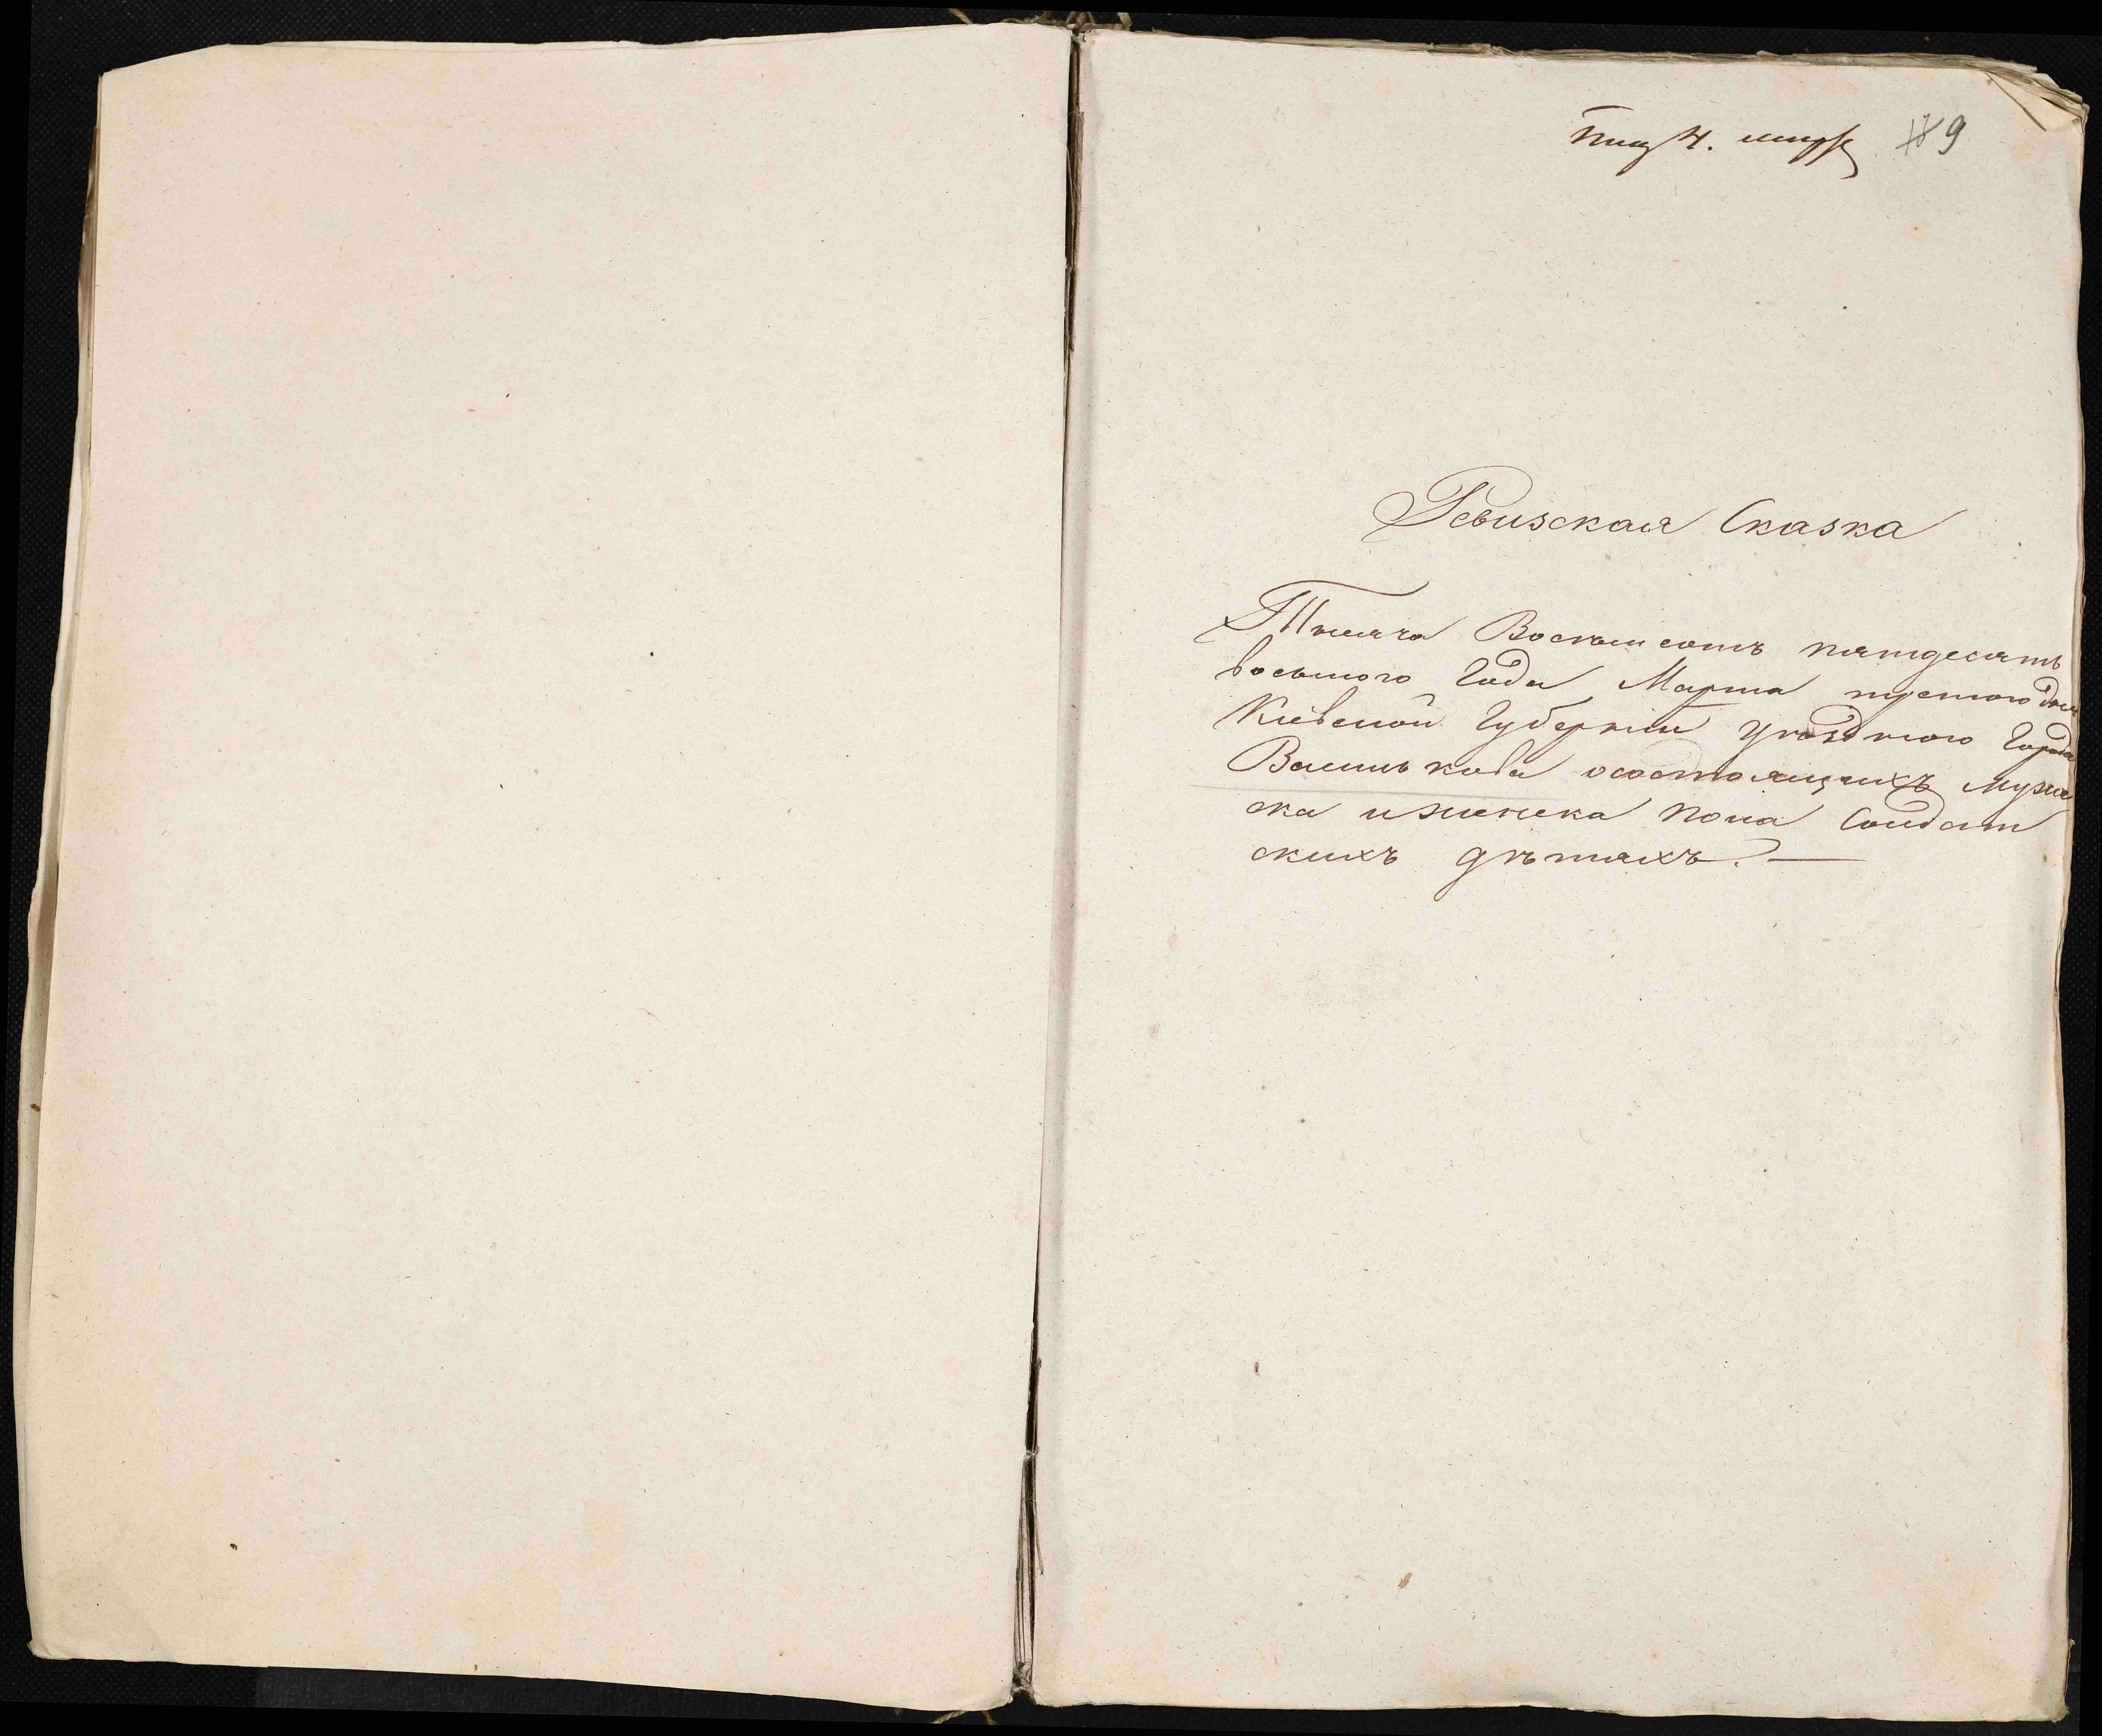 9
Ревизская Сказка
Тысяча Восемьсотъ пятдесятъ
восьмого Года Марта третьего дня
Кіевской Губерніи Уѣзднаго Города
Василькова осостоящихъ мужe
ска иженска пола Солдат
скихъ дѣтяхъ.